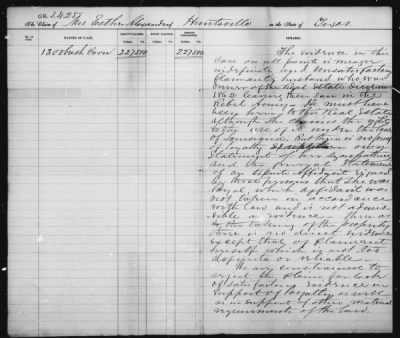 No. 2425
The Claim of Mrs Esther Alexander of Huntsville in the State of Texas.
NATURE OF CLAIM. AMOUNT CLAIMED. AMOUNT ALLOWED. AMOUNT DISALLOWED. REMARKS.
1300 bush Corn 2275 00 2275 00
The evidence in this
Case on all points is meager
indefinite and unsatisfactory
Claimants husband who was
owner of the Real Estate died in
1862 leaving then son in the
Rebel Army. He must have
been heir to this Real Estate
although she claims the right
to the use of it under the laws
of
of loyalty except her own
Statement of her sympathies
and the general statement
of an Exparte affidavit signed
by three persons that she was
loyal which affidavit was
not taken in accordance
with law and is not admis-
sible as evidence. Then as
to the taking of the property
there is no direct evidence
except that of Claimant
herself which is not
definite or reliable.
We are constrained to
reject the claim for lack
of satisfactory evidence in
support of loyalty as well
as in support of other material
requirements of the law.